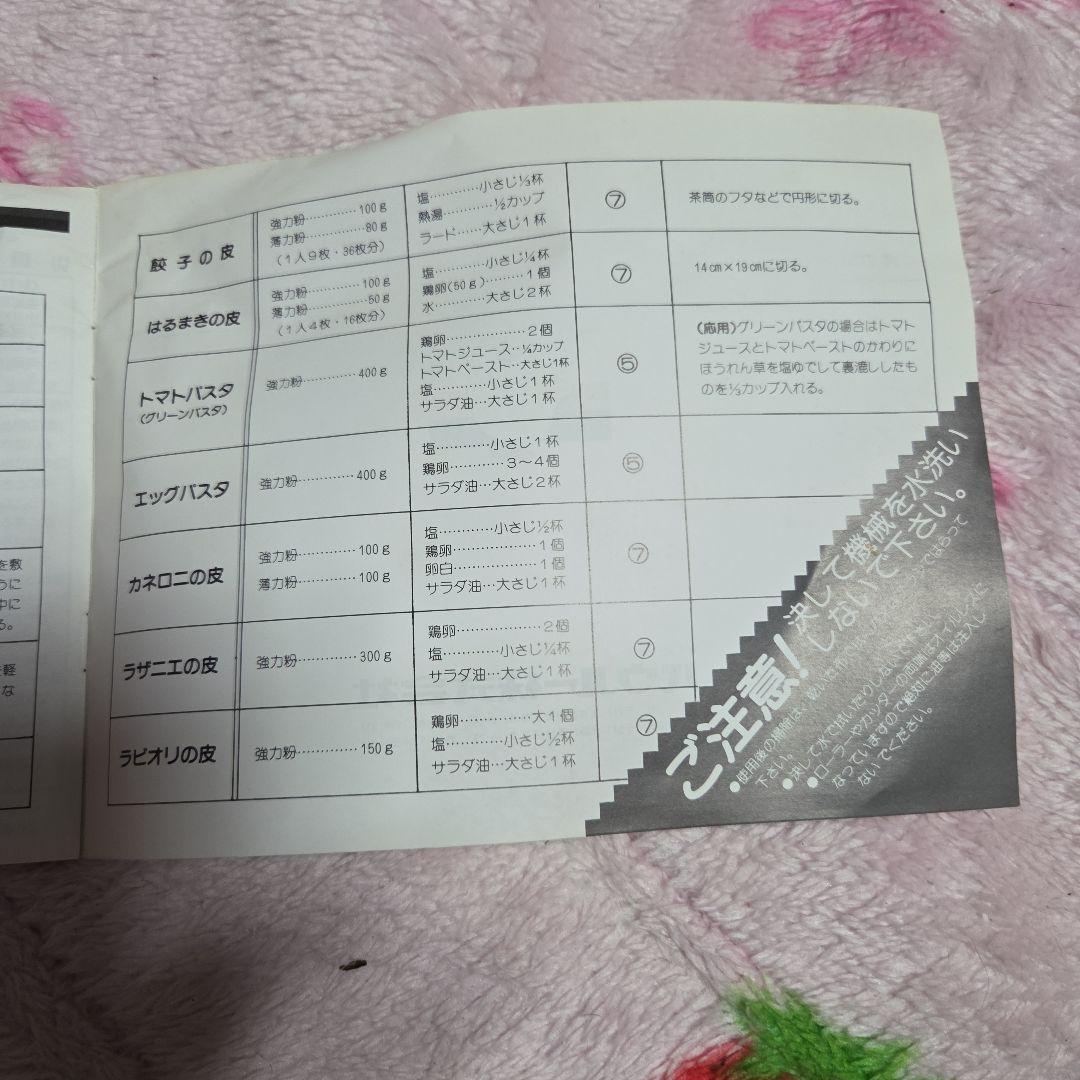 餃子の皮
強力粉…………100g
薄力粉…………80g
(1人9枚・36枚分)
塩…………小さじ⅓杯
熱湯…………½カップ
ラード……大さじ1杯
⑦
茶筒のフタなどで円形に切る。
はるまきの皮
強力粉…………100g
薄力粉…………50g
(1人4枚・16枚分)
塩…………小さじ¼杯
鶏卵(50g)………1個
水…………大さじ2杯
⑦
14cm×19cmに切る。
トマトパスタ
(グリーンパスタ)
強力粉…………400g
鶏卵…………………2個
トマトジュース‥¼カップ
トマトペースト‥大さじ1杯
塩…………小さじ1杯
サラダ油…大さじ1杯
⑤
(応用)グリーンパスタの場合はトマト
ジュースとトマトペーストのかわりに
ほうれん草を塩ゆでして裏漉ししたも
のを⅓カップ入れる。
エッグパスタ
強力粉…………400g
塩…………小さじ1杯
鶏卵…………3〜4個
サラダ油…大さじ2杯
⑤
カネロニの皮
強力粉…………100g
薄力粉…………100g
塩…………小さじ½杯
鶏卵…………………1個
卵白…………………1個
サラダ油…大さじ1杯
⑦
ラザニエの皮
強力粉…………300g
鶏卵…………………2個
塩…………小さじ¼杯
サラダ油…大さじ1杯
⑦
ラビオリの皮
強力粉…………150g
鶏卵……………大1個
塩…………小さじ½杯
サラダ油…大さじ1杯
⑦
ご注意!
決して機械を水洗い
しないで下さい。
●使用後の掃除は、乾いた
ではらって
下さい。
●決して水で拭いたり
●ローラーやカッターの両端はオイルレスに
なっていますので絶対に油等は注入し
ないでください。
を敷
うに
中に
る。
を軽
な